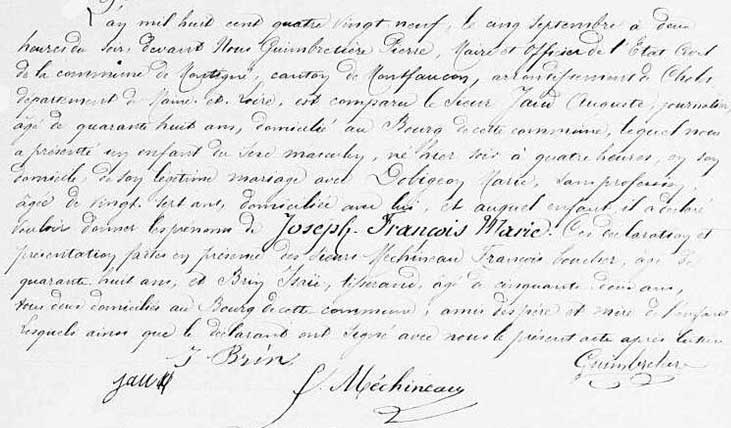 L'an mil huit cent quatre vingt neuf, le cinq septembre à deux
heures du soir, devant Nous Guimbretière Pierre, Maire et Officier de l'Etat Civil
de la commune de Montigné, canton de Montfaucon, arrondissement de Cholet
département de Maine-et-Loire, est comparu le sieur Jaud Auguste, journalier,
âgé de quarante huit ans, domicilié au Bourg de cette commune, lequel nous
a présenté un enfant du sexe masculin, né hier soir à quatre heures, en son
domicile, de son légitime mariage avec Dobigeon Marie, sans profession,
âgée de vingt sept ans, domiciliée avec lui, et auquel enfant, il a déclaré
vouloir donner les prénoms de Joseph-François Marie. Ces déclaration et
présentation faites en présence des sieurs Méchineau François boucher, âgé de
quarante huit ans, et Brin tisserand, âgé de cinquante deux ans,
tous deux domiciliés au Bourg de cette commune, amis des père et mère de l'enfant
Lesquels ainsi que le déclarant ont signé avec nous le présent acte après lecture
J Brin Guimbretière
jaud f Méchineau